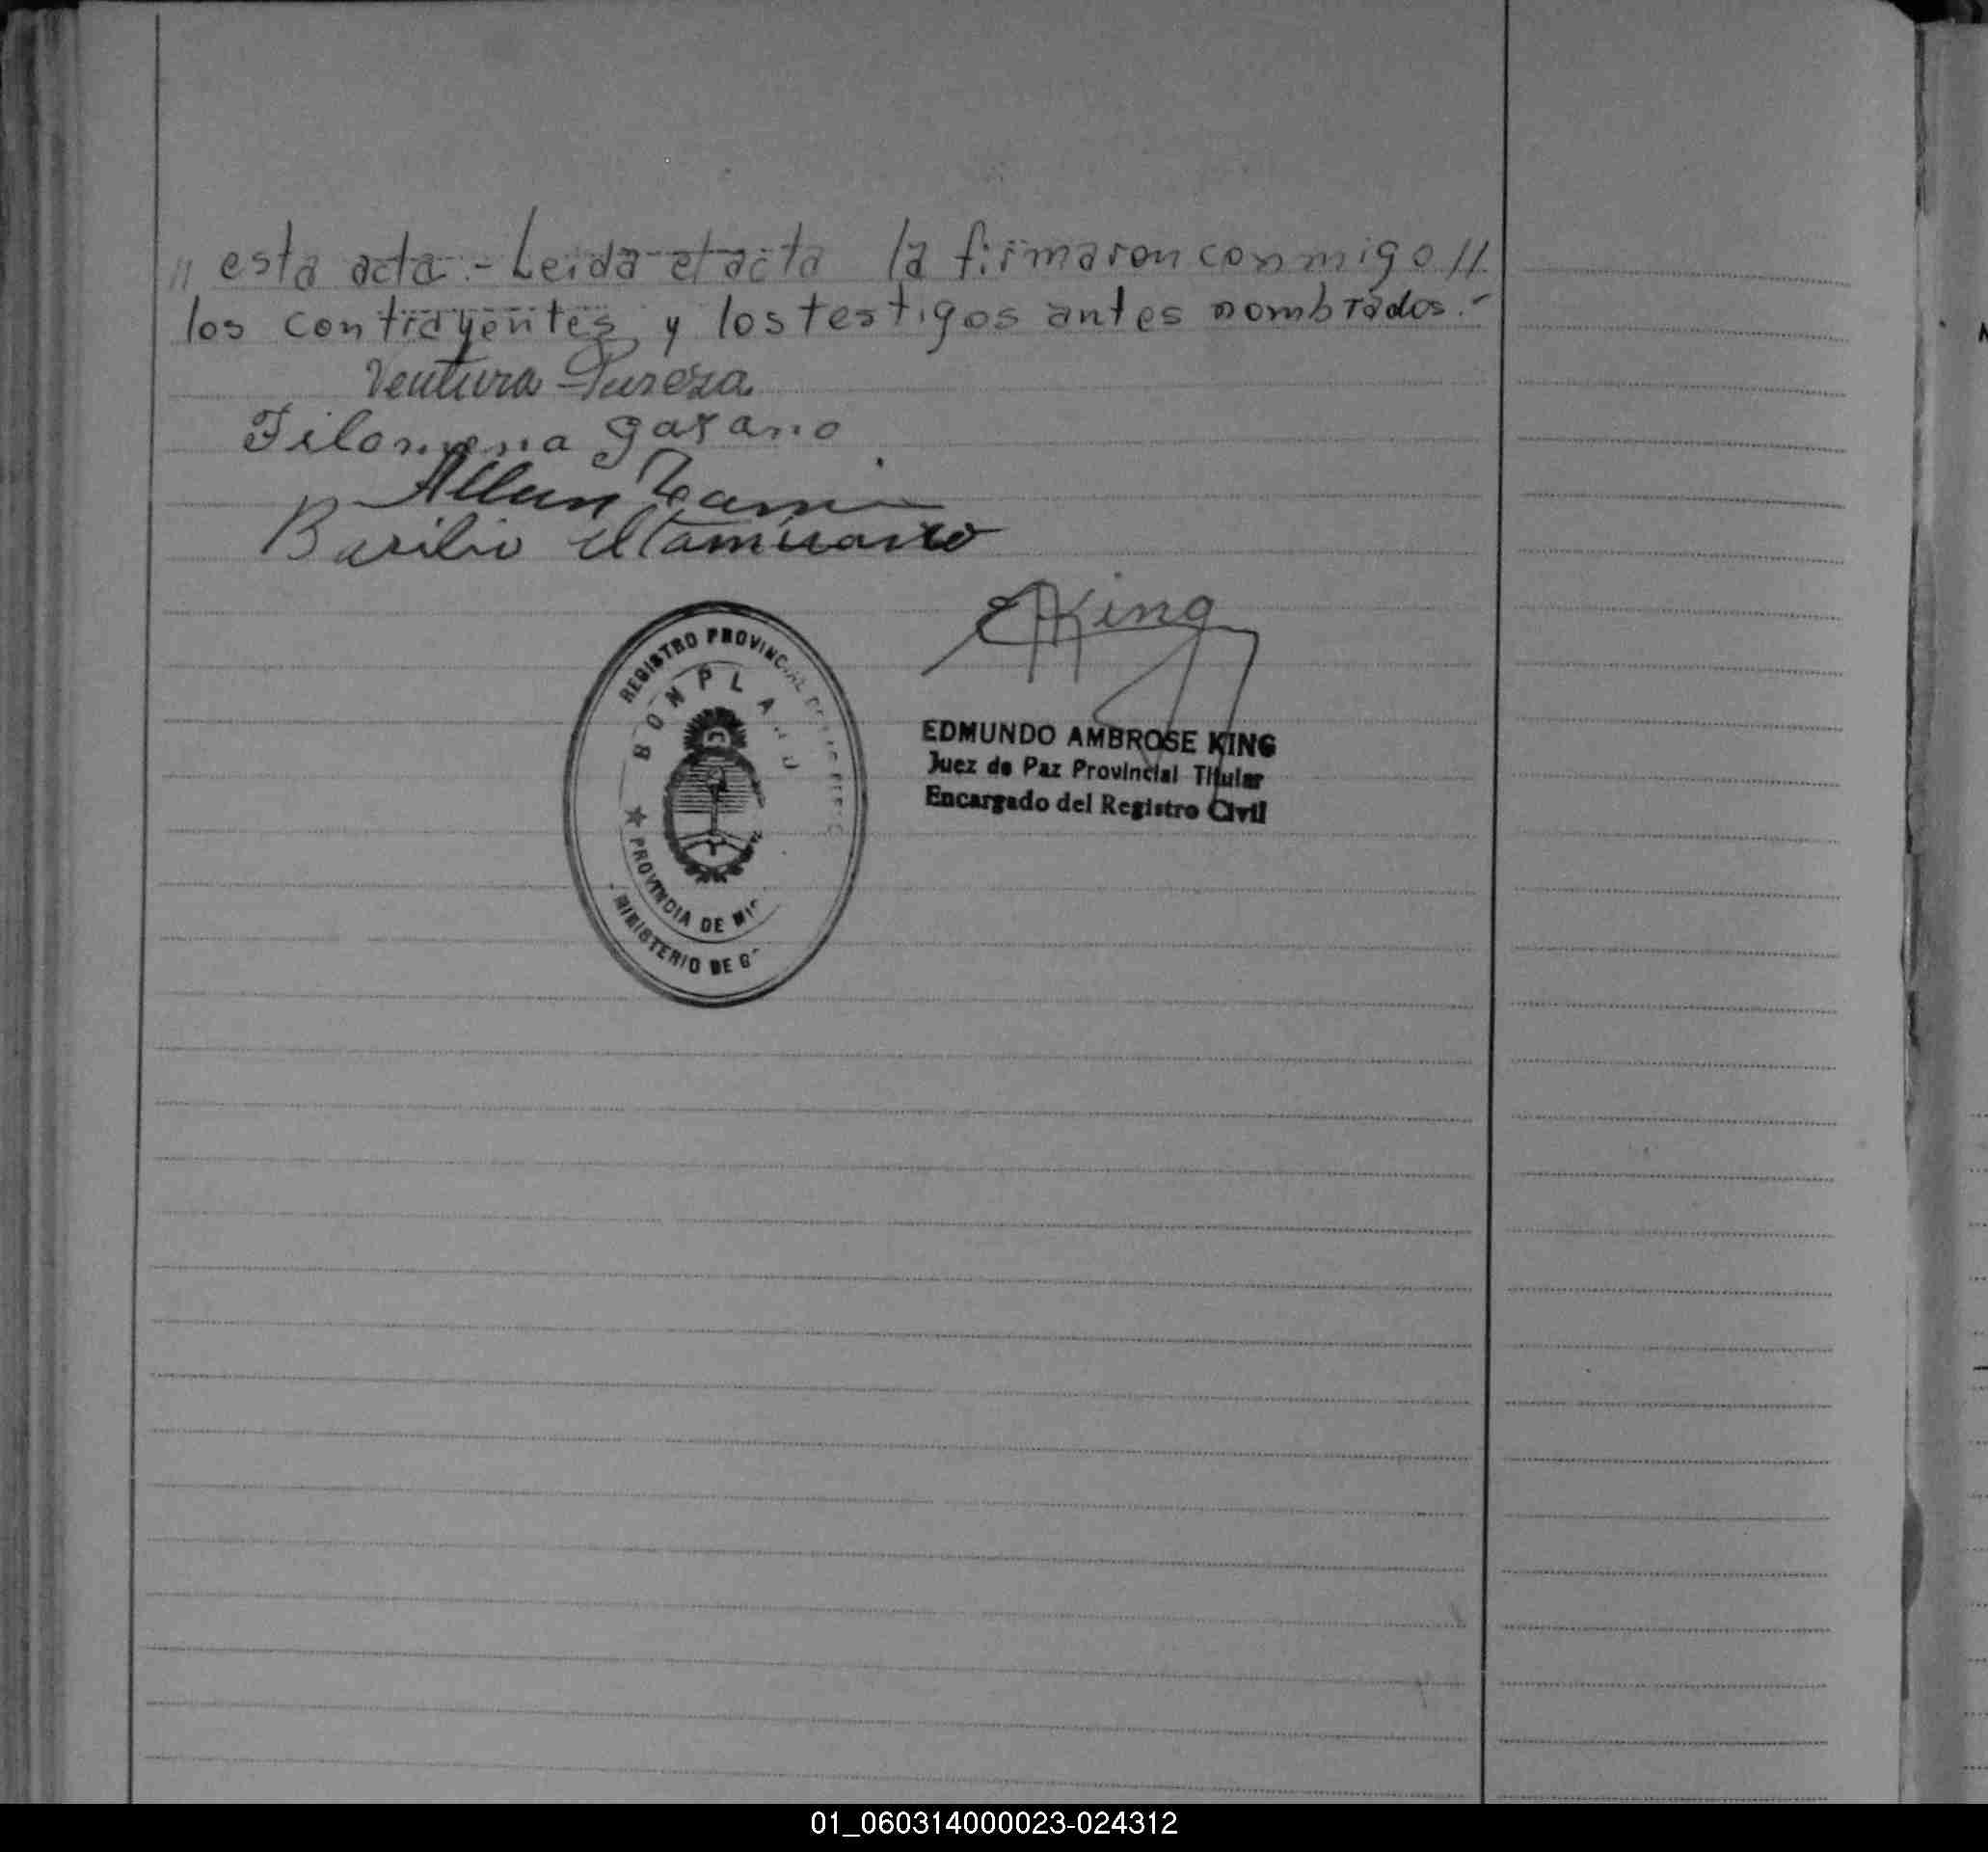 // esta acta.- Leida el acta la firmaron conmigo //
los contrayentes y los testigos antes nombrados.-
Ventura Pereza
Filomena Garano
Allan
Basilio Altamirano
EKing
REGISTRO PROVINCIAL DE
BONPLAND
PROVINCIA DE MIS
MINISTERIO DE G
EDMUNDO AMBROSE KING
Juez de Paz Provincial Titular
Encargado del Registro Civil
01_060314000023-024312